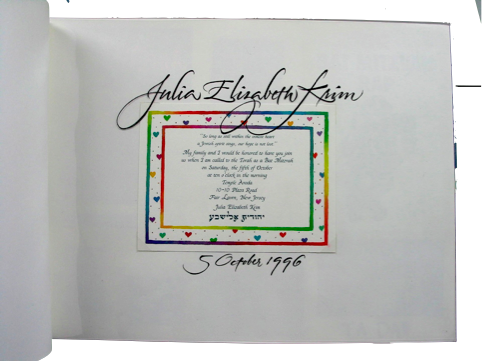 Julia Elizabeth Krim
"So long as still within the inmost heart
a Jewish spirit sings, our hope is not lost."
My family and I would be honored to have you join
us when I am called to the Torah as a Bas Mitzvah
on Saturday, the fifth of October
at ten o'clock in the morning
Temple Avoda
10-10 Plaza Road
Fair Lawn, New Jersey
Julia Elizabeth Krim
יהודית אלישבע
5 October 1996